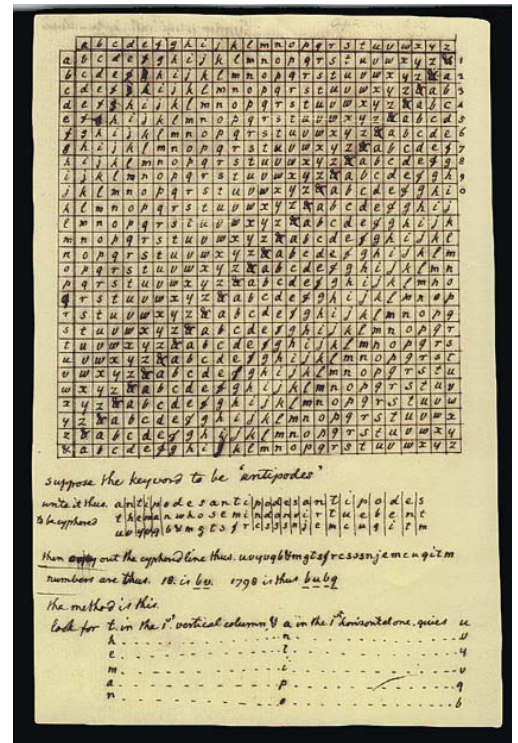 a b c d e f g h i j k l m n o p q r s t u v w x y z
a b c d e f g h i j k l m n o p q r s t u v w x y z & 1
b c d e f g h i j k l m n o p q r s t u v w x y z & a 2
c d e f g h i j k l m n o p q r s t u v w x y z & a b 3
d e f g h i j k l m n o p q r s t u v w x y z & a b c 4
e f g h i j k l m n o p q r s t u v w x y z & a b c d 5
f g h i j k l m n o p q r s t u v w x y z & a b c d e 6
g h i j k l m n o p q r s t u v w x y z & a b c d e f 7
h i j k l m n o p q r s t u v w x y z & a b c d e f g 8
i j k l m n o p q r s t u v w x y z & a b c d e f g h 9
j k l m n o p q r s t u v w x y z & a b c d e f g h i 0
k l m n o p q r s t u v w x y z & a b c d e f g h i j
l m n o p q r s t u v w x y z & a b c d e f g h i j k
m n o p q r s t u v w x y z & a b c d e f g h i j k l
n o p q r s t u v w x y z & a b c d e f g h i j k l m
o p q r s t u v w x y z & a b c d e f g h i j k l m n
p q r s t u v w x y z & a b c d e f g h i j k l m n o
q r s t u v w x y z & a b c d e f g h i j k l m n o p
r s t u v w x y z & a b c d e f g h i j k l m n o p q
s t u v w x y z & a b c d e f g h i j k l m n o p q r
t u v w x y z & a b c d e f g h i j k l m n o p q r s
u v w x y z & a b c d e f g h i j k l m n o p q r s t
v w x y z & a b c d e f g h i j k l m n o p q r s t u
w x y z & a b c d e f g h i j k l m n o p q r s t u v
x y z & a b c d e f g h i j k l m n o p q r s t u v w
y z & a b c d e f g h i j k l m n o p q r s t u v w x
z & a b c d e f g h i j k l m n o p q r s t u v w x y
& a b c d e f g h i j k l m n o p q r s t u v w x y z
suppose the keyword to be "antipodes"
write it thus. a n t i p o d e s a n t i p o d e s a n t i p o d e s
to be cyphered t h e m a n w h o s e m i n d o n v i r t u e b e n t
u v y v q b & m g t s f r c s s s n j e m c u g i t m
then copy out the cyphered line thus. uvyvqb&mgtsfrcsssnjemcugitm
numbers are thus. 18. is bv. 1798 is thus bubq
the method is this.
look for t. in the 1st. vertical column & a in the 1st. horizontal one, gives u
h. n. v
e. t. y
m. i. v
a. p. q
n. o. b